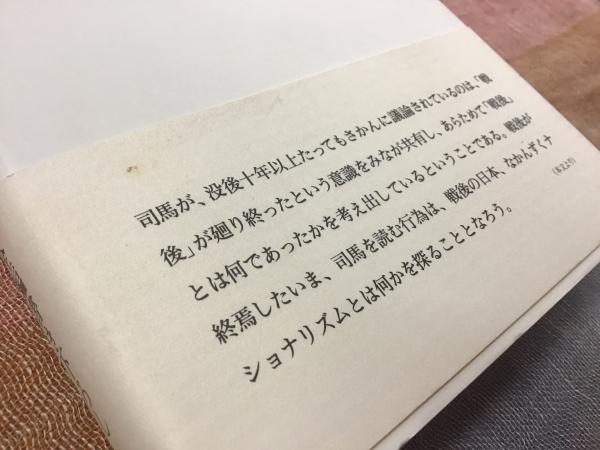 司馬が、没後十年以上たってもさかんに議論されているのは、「戦
後」が廻り終ったという意識をみなが共有し、あらためて「戦後」
とは何であったかを考え出しているということである。戦後が
終焉したいま、司馬を読む行為は、戦後の日本、なかんずくナ
ショナリズムとは何かを探ることとなろう。
（本文より）